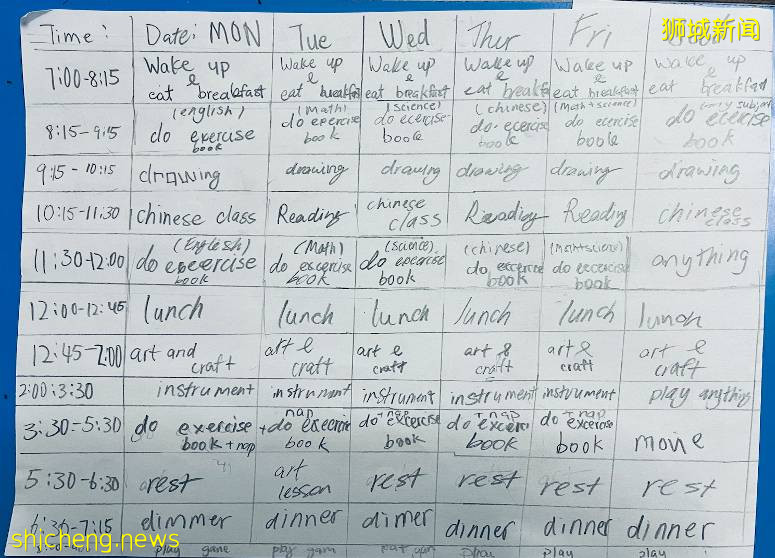 狮城新闻
Time: Date: MON Tue Wed Thur Fri
7:00-8:15 Wake up & eat breakfast Wake up & eat breakfast Wake up & eat breakfast Wake up & eat breakfast Wake up & eat breakfast Wake up & eat breakfast
8:15-9:15 (english) do exercise book (Math) do exercise book (science) do exercise book (chinese) do ecercise book (Math+science) do ecercise book do ecercise book
9:15-10:15 drawing drawing drawing drawing drawing drawing
10:15-11:30 chinese class Reading chinese class Reading Reading chinese class
11:30-12:00 (English) do excercise book (Math) do excercise book (science) do excercise book (chinese) do excercise book (Math+science) do excercise book anything
12:00-12:45 lunch lunch lunch lunch lunch lunch
12:45-2:00 art and craft art & craft art & craft art & craft art & craft art & craft
2:00:3:30 instrument instrument instrument instrument instrument play anything
3:30-5:30 do exercise book + nap + nap do excercise book + nap do excercise book + nap do excerci book + nap do exercise book movie
5:30-6:30 rest art lesson rest rest rest rest
6:30-7:15 dimmer dinner dimer dinner dinner dinner
play game play gam play play play
shicheng.news